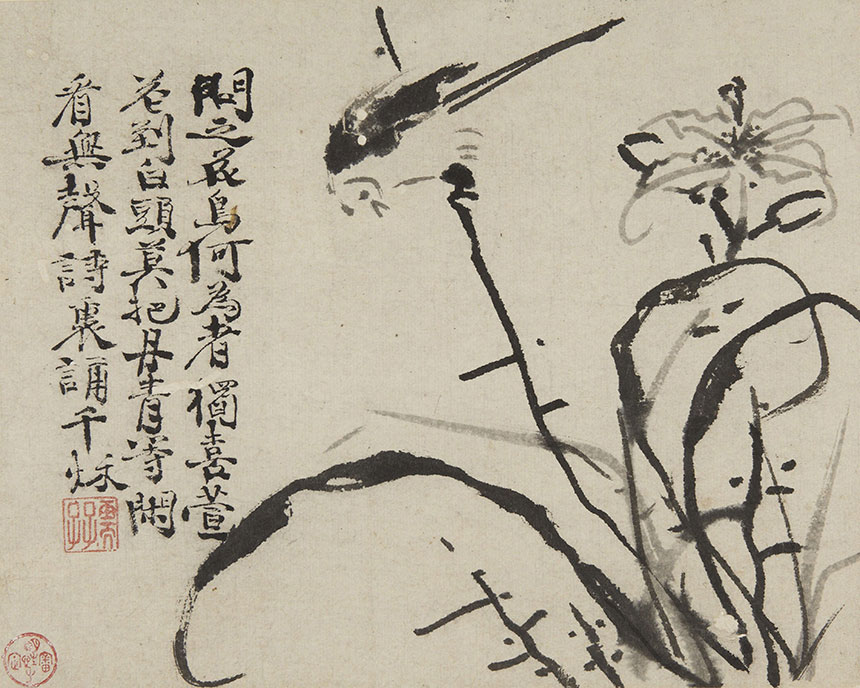 問之花鳥何為者獨喜萱
花到白頭莫把丹青等閑
看無聲詩裏誦千秋